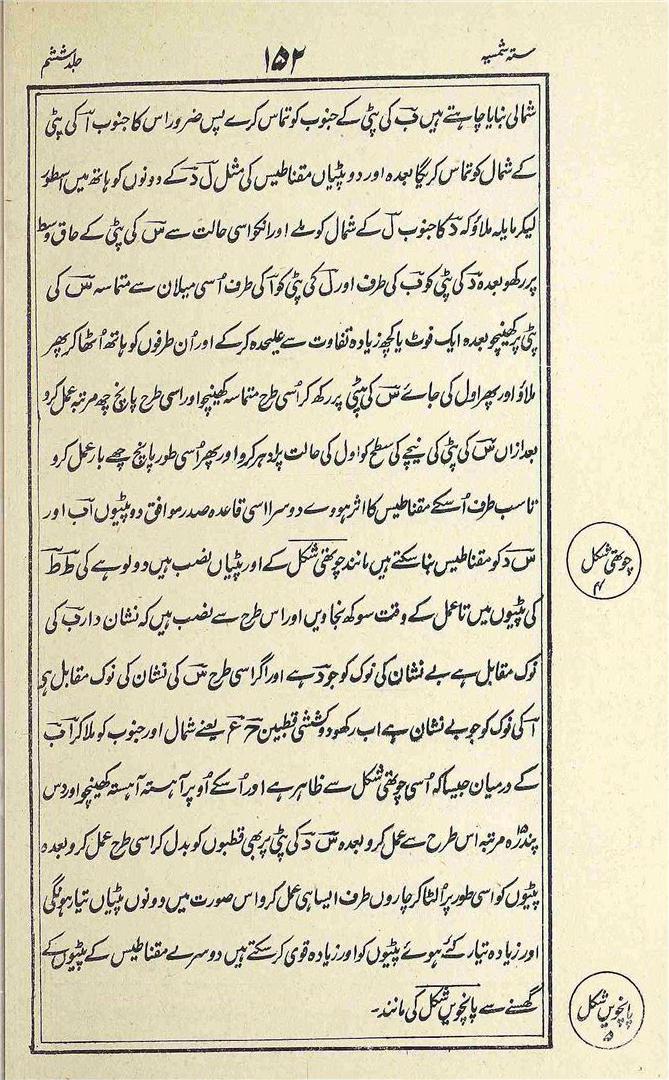 ستہ شمسیہ ۱۵۲ جلد ششم
شمالی بنایا چاہتے ہیں ف کی پٹی کے جنوب کو تماس کرے پس ضرور اس کا جنوب آ کی پٹی
کے شمال کو تماس کریگا بعدہ اور دو پٹیاں مقناطیس کی مثل ل د کے دونوں کو ہاتھ میں اسطور
لیکر مایلہ ملاؤ کہ د کا جنوب ل کے شمال کو ملے اور انکو اسی حالت سے س کی پٹی کے حاق وسط
پر رکھو بعدہ د کی پٹی کو ف کی طرف اور ل کی پٹی کو آ کی طرف اُسی میلان سے متماسہ س کی
پٹی پر کھینچو بعدہ ایک فوٹ یا کچھ زیادہ تفاوت سے علیحدہ کر کے اور اُن طرفوں کو ہاتھ اُٹھا کر پھر
ملاؤ اور پھر اول کی جائے س کی پٹی پر رکھ کر اُسی طرح متماسہ کھینچو اور اسی طرح پانچ چھ مرتبہ عمل کرو
بعد ازاں س کی پٹی کی نیچے کی سطح کو اول کی حالت پر اِدہر کرو اور پھر اُسی طور پانچ چھے بار عمل کرو
تا سب طرف اُسکے مقناطیس کا اثر ہووے دوسرا اسی قاعدہ صدر موافق دو پٹیوں آف اور
س د کو مقناطیس بنا سکتے ہیں مانند چوتھی شکل کے اور پٹیاں نصب ہیں دو لوہے کی ط ط
کی پٹیوں میں تا عمل کے وقت سوکھ نجاویں اور اس طرح سے نصب ہیں کہ نشان دار ف کی
نوک مقابل ہے بے نشان کی نوک کو جو د ہے اور اگر اسی طرح س کی نشان کی نوک مقابل ہی
آ کی نوک کو جو بے نشان ہے اب رکھو دو کششی قطبین ح ع یعنے شمال اور جنوب کو ملا کر آ ف
کے درمیان جیسا کہ اُسی چوتھی شکل سے ظاہر ہے اور اُسکے اُوپر آہستہ آہستہ کھینچو اور دس
پندرہ مرتبہ اس طرح سے عمل کرو بعدہ س د کی پٹی پر بھی قطبوں کو بدل کر اسی طرح عمل کرو بعدہ
پٹیوں کو اسی طور پر اُلٹا کر چاروں طرف ایسا ہی عمل کرو اس صورت میں دونوں پٹیاں تیار ہونگی
اور زیادہ تیار کئے ہوئے پٹیوں کو اور زیادہ قوی کر سکتے ہیں دوسرے مقناطیس کے پٹیوں کے
گھسنے سے پانچویں شکل کی مانند۔
چوتھی شکل
۴
پانچویں شکل
۵